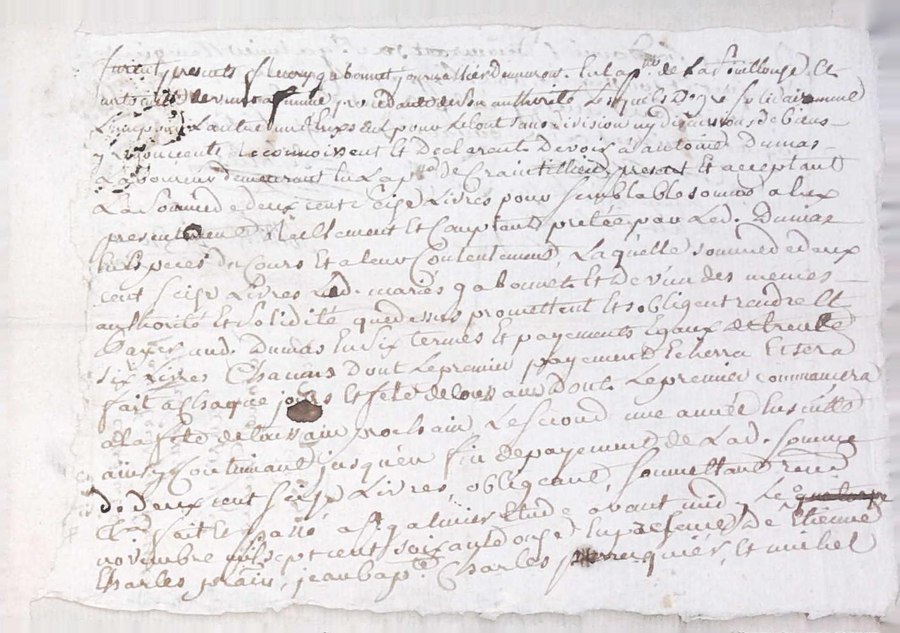 furent presents fleury gabonnet journallier demeurant en la pse de La fouillouse Et
sa femme procedante de son authorité Lesquels de gré solidairement
L'un pour L'autre un deux seul pour le tout sans division ny discution de biens
y Renoncent Reconnoissent Et Declarent Devoir à antoine Dumas
Laboureur demeurant En La pse de Craintillieu, present Et acceptant
La somme de deux cent seize Livres pour semblable somme a Eux
presentement Réellement Et Comptant pretée par Led. Dumas
En Especes du Cours Et a leur Contentement, Laquelle somme de deux
cent seize Livres Led. mariés gabonnet Et Devun des memes
authorité Et solidité que dessus promettent Et sobligent rendre Et
payer aud. Dumas En six termes Et payements Egaux de trente
six Livres Chacun Dont Le premier payement Echerra Et sera
fait a Chaque jour Et fete de tous saints Dont Le premier commancera
a la fete de toussain prochain Le second une année Ensuitte
ainsy Continuant jusqu'en fin de payement de Lad. somme
de deux cent seize Livres, obligeant, soumettant renon
Et Fait Et passé a St galmier Etude avant midy Le
novembre mil sept cent soixante onze En presence de Etienne
Charles plain, jean bape Charles perruquier, Et michel